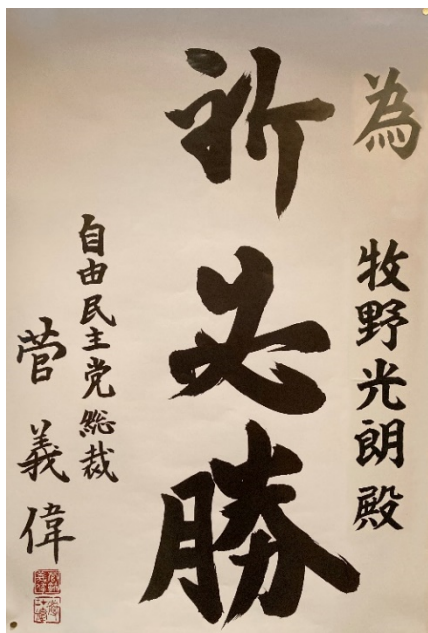 為 牧野光朗殿
祈必勝
自由民主党総裁
菅義偉